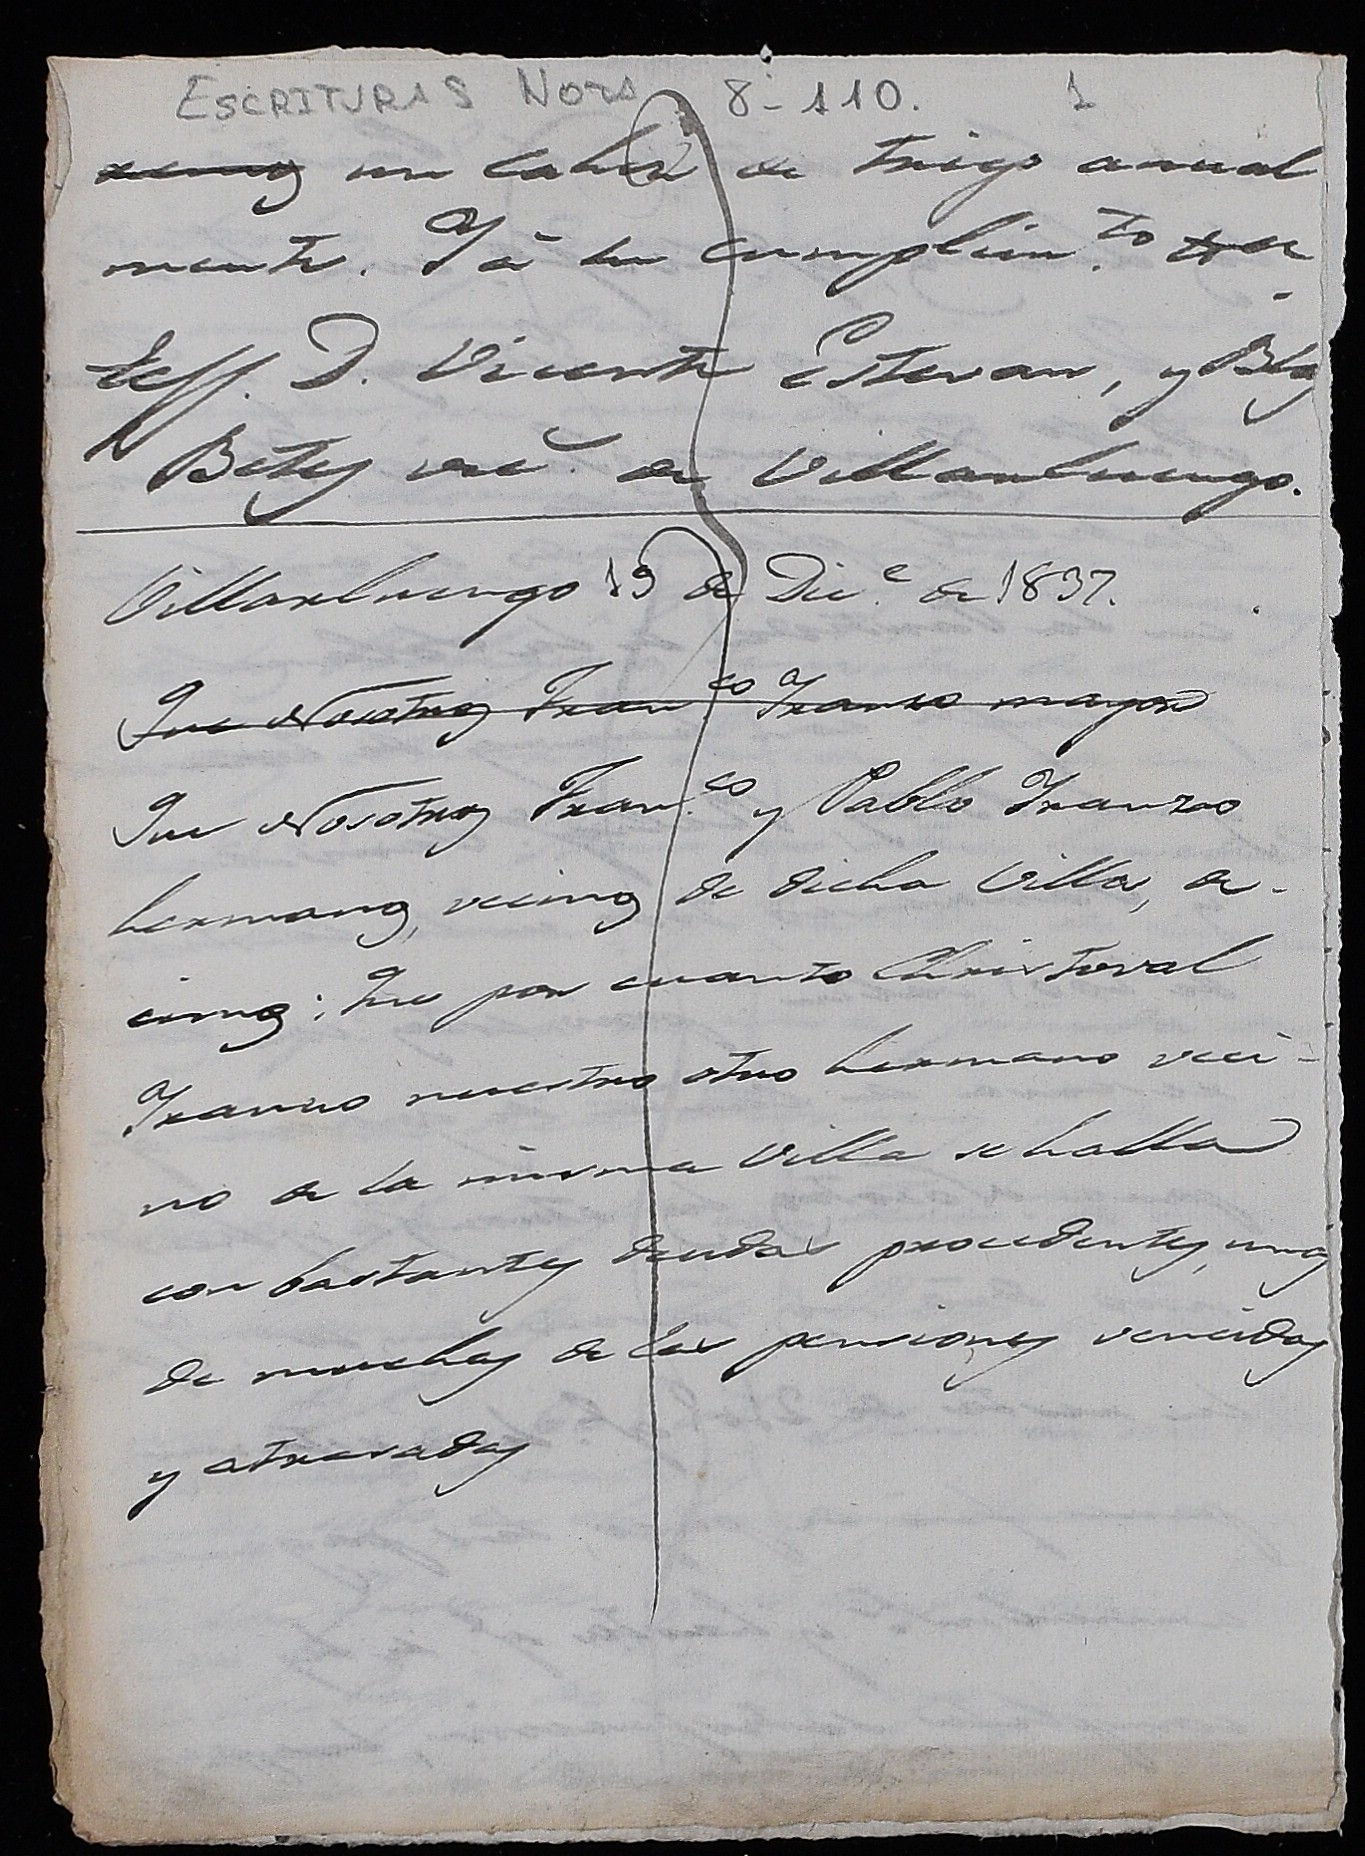 ESCRITURAS Nots 8-110. 1
un cahiz de trigo anual
mente. Y à su cumplim.to
Teff. D. Vicente Estevan, y Blas
Betes vec.s de Villarluengo.
Villarluengo 19 de Dic.e de 1837.
Que Nosotros Fran.co Franzo mayor
Que Nosotros Fran.co y Pablo Franzo
hermanos, vecinos de dicha Villa, de-
cimos: Que por cuanto Christoval
Franzo nuestro otro hermano veci-
no de la misma Villa se halla
con bastantes deudas procedentes, unas
de muchas de las pensiones vencidas
y atrasadas